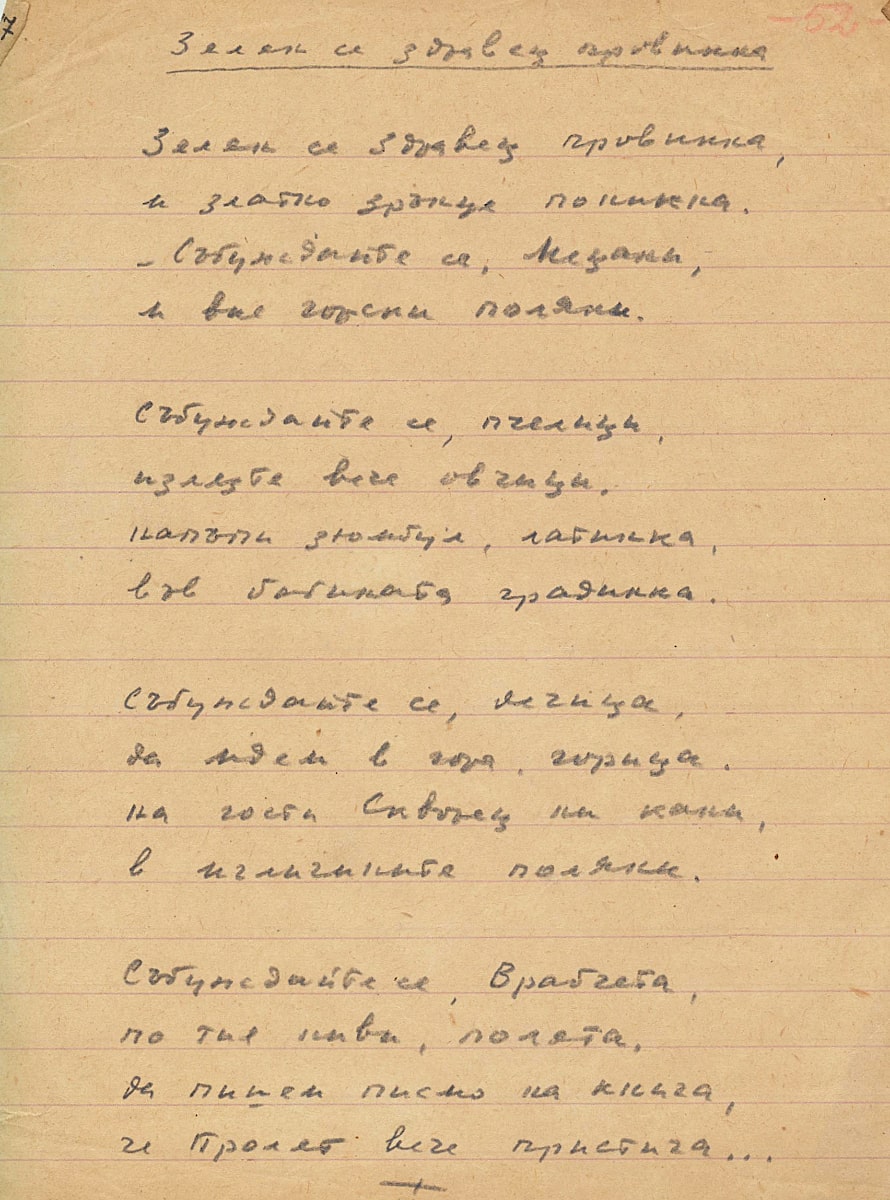 7
-52-
Зелен се здравец провинка
Зелен се здравец провинка,
и златно зрънце покинка.
- Събуждайте се, Мецани,
и вие горски поляни.
Събуждайте се, пчелици,
излезте вече овчици.
напъпи зюмбул, латинка,
във бабината градинка.
Събуждайте се, дечица,
да идем в гора, горица.
на гости Скворец ни кани,
в игличините поляни.
Събуждайте се, Врабчета,
по тие ниви, полята,
да пишем писмо на книга,
че Пролет вече пристига...